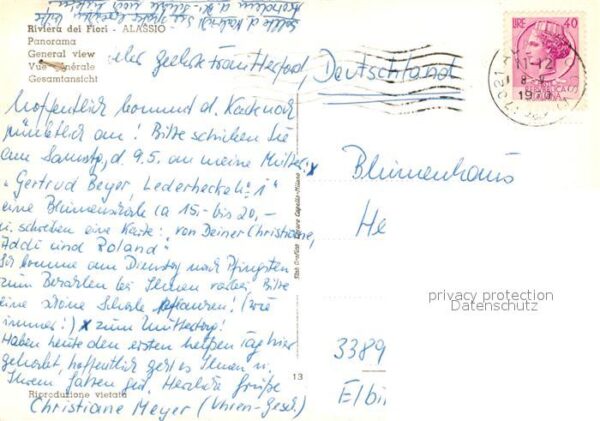 Riviera dei Fiori - ALASSIO
Panorama
General view
Vue générale
Gesamtansicht
geehrte Frau Herford,
Deutschland
LIRE 40
11-12
1970
hoffentlich kommt d. Karte noch
pünktlich an! Bitte schicken Sie
am Samstg, d. 9.5. an meine Mutter: x
"Gertrud Beyer, Lederhecke 1"
eine Blumenschale (a 15,- bis 20,-
u. schreiben eine Karte: von Deiner Christiane,
Addi und Roland!
Ich komme am Dienstag nach Pfingsten
zum Bezahlen bei Ihnen vorbei, Bitte
eine schöne Schale pflanzen! (wie
immer!) x zum Muttertag!
Haben heute den ersten heißen Tag hier
gehabt, hoffentlich geht es Ihnen u.
Ihrem Gatten gut. Herzliche Grüße
Christiane Meyer (Uhren-Gesch.)
Riproduzione vietata
13
Blumenhaus
He
3389
Elbin
privacy protection
Datenschutz